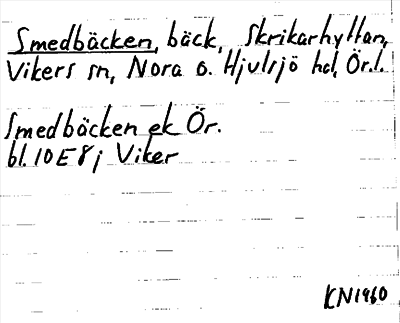 Smedbäcken, bäck, Skrikarhyttan,
Vikers sn, Nora o. Hjulsjö hd, Ör.l.
Smedbäcken ek Ör.
bl. 10E8j Viker
KN1960